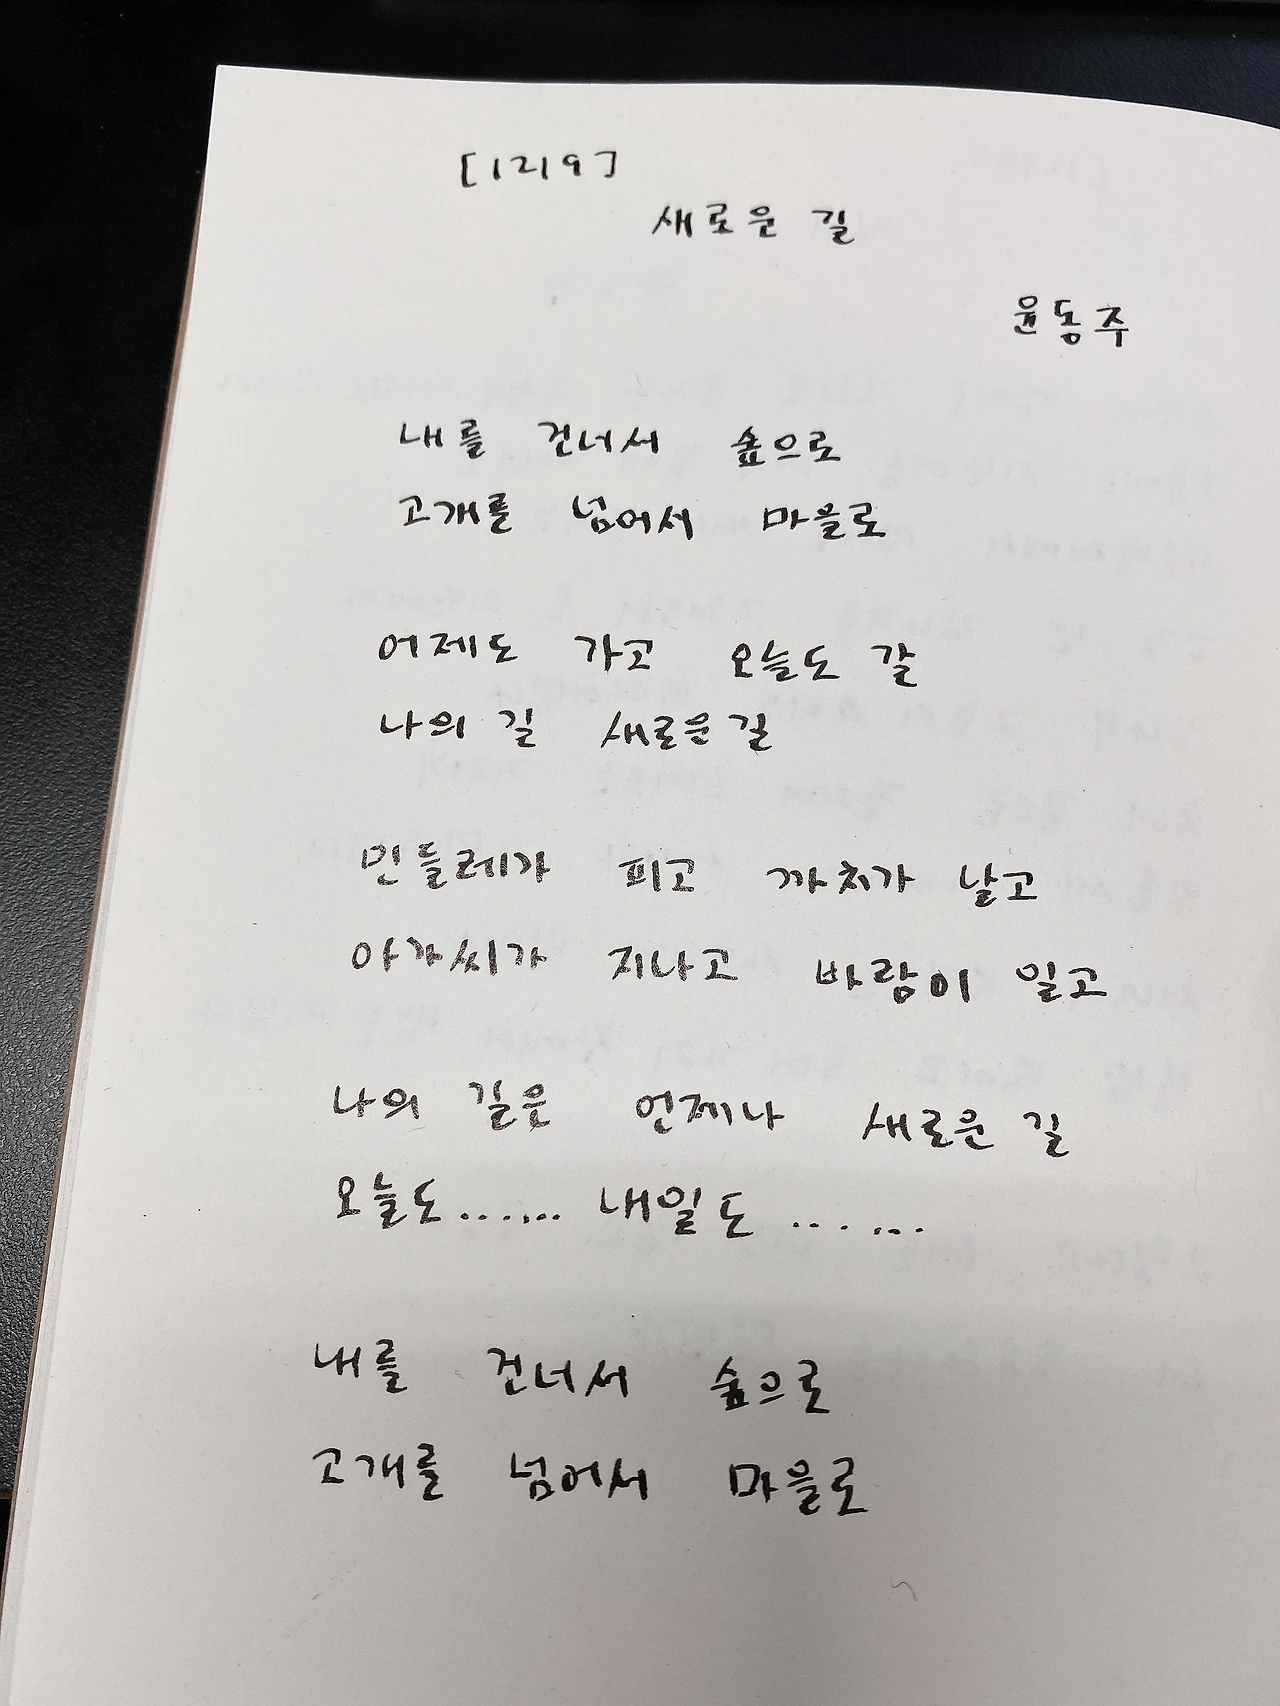 [1219]
새로운 길
윤동주
내를 건너서 숲으로
고개를 넘어서 마을로
어제도 가고 오늘도 갈
나의 길 새로운 길
민들레가 피고 까치가 날고
아가씨가 지나고 바람이 일고
나의 길은 언제나 새로운 길
오늘도...... 내일도 ......
내를 건너서 숲으로
고개를 넘어서 마을로